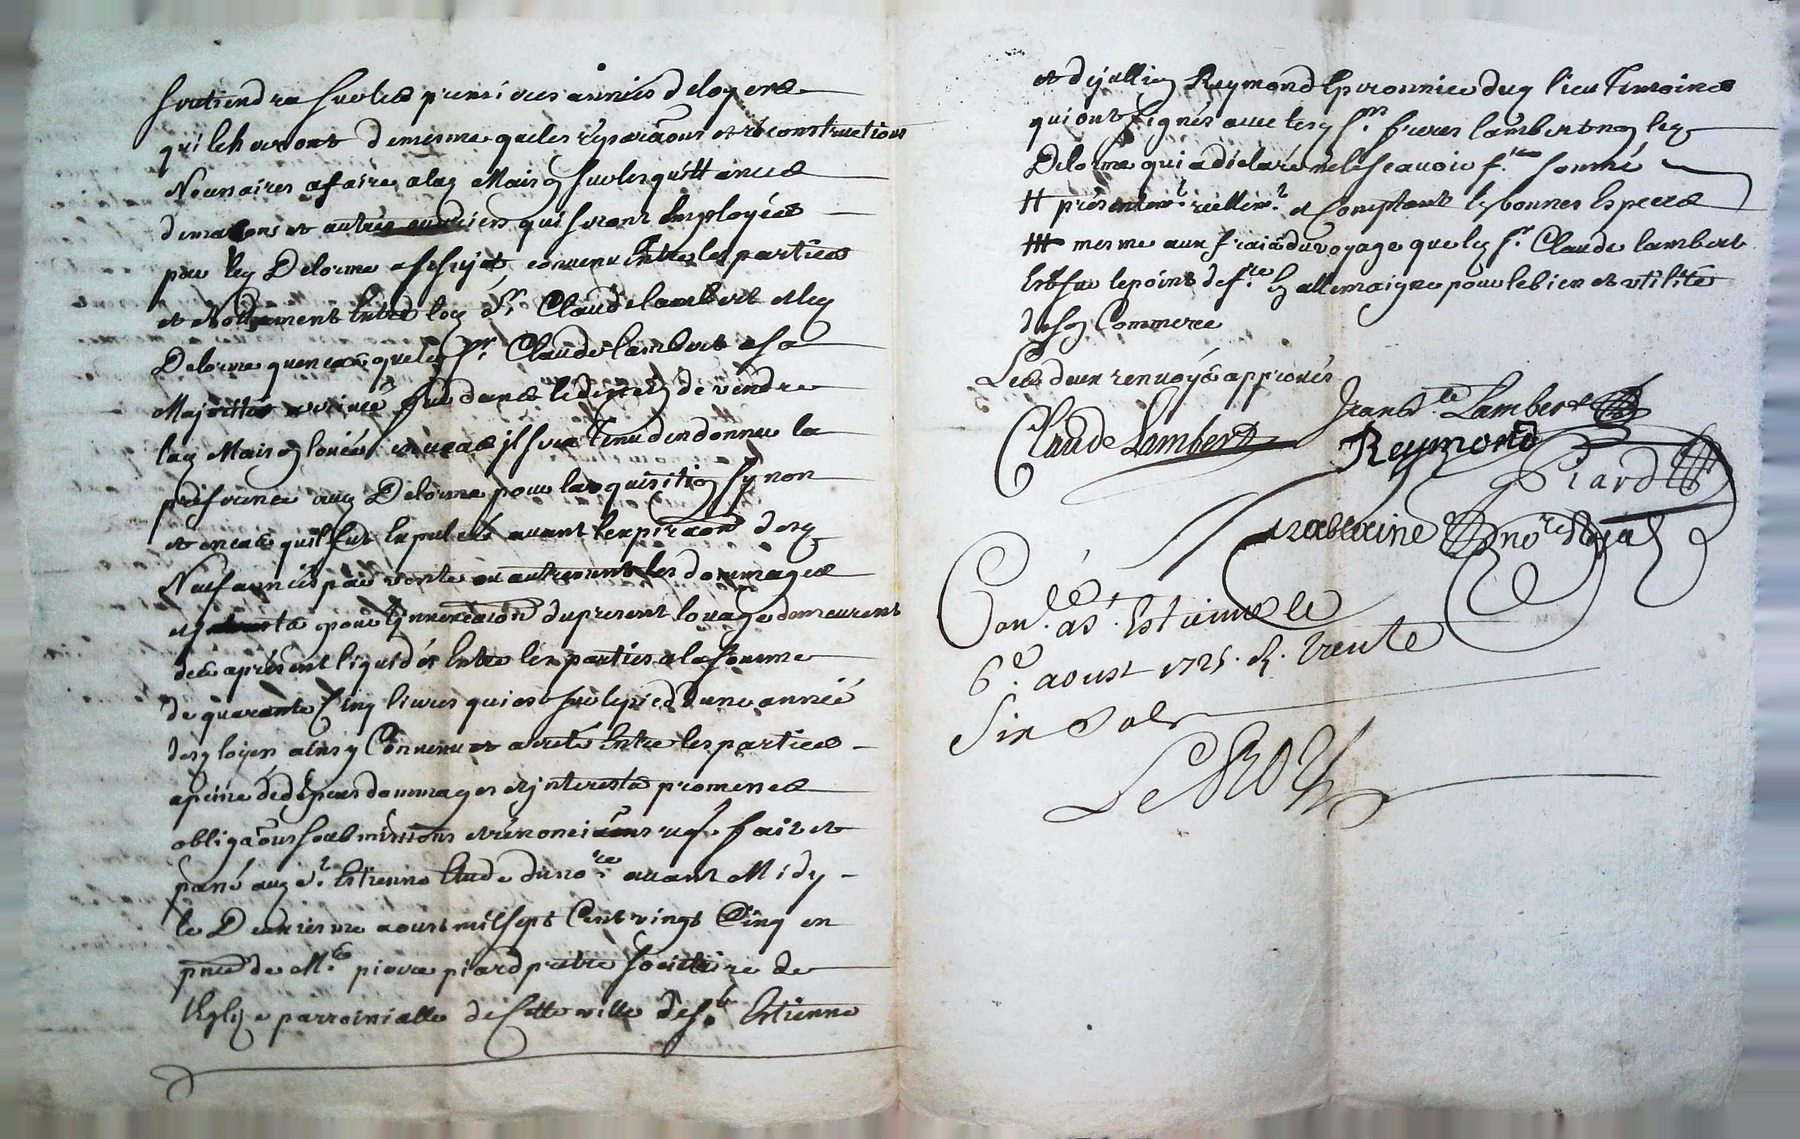 soutiendra sur les premieres années de loyers
qui lcherront demesme que les réparaons et réconstructions
Nécessaires afaire alad Maison sur les quittances
de masons et autres ouvriers qui seront Employées
par led Delorme asesujet, convenu Entre les parties
et Nottamment Entre led Sr. Claude lambert et led
Delorme quencas que led Sr. Claude lambert a sa
Majorité arrivé fut dans le dessein de vendre
lad Maison louée, encecas il sera Tenu den donner la
préferance aud Delorme pour lacquisition synon
et encas quil fut Expulsé avant lexpiraon desd
Neuf années par vente ou autrement les dommages
et pour Linnexecution du present louage demeurent
des aprésent liquidés Entre les parties ala somme
de quarante Cinq livres qui est sur le pied dune année
desd loyers ainsy Convenu et areté Entre les parties
apeine de dépens dommages et jnterests promesses
obligaons soubmissions et rénonciaons fait et
passé aud St. Estienne Etude du nore avant Midy
le Deuxiesme aoust mil sept Cent vingt Cinq en
pnce de Me. pierre piard pretre societaire de
lEglize parroissialle de Cette ville de St. Estienne
et de jullien Reymond Eperonnier dud lieu Temoins
qui ont signés avec lesd Srs. freres lambert non led
Delorme qui a déclaré ne le scavoir fre. sommé
# présentemt. réellemt. et Comptant En bonnes Especes
mesme aux fraix du voyage que led Sr. Claude lambert
Est sur le point de fre. En allemaigne pour le bien et utilité
de son Commerce
Les deux renvoys approuvés
Jean Bte. Lambert
Claude Lambert
Reymond
Piard
nore Royal
Con. as. Estienne le
6e. aoust 1725. R. trente
Six sols
LeROY